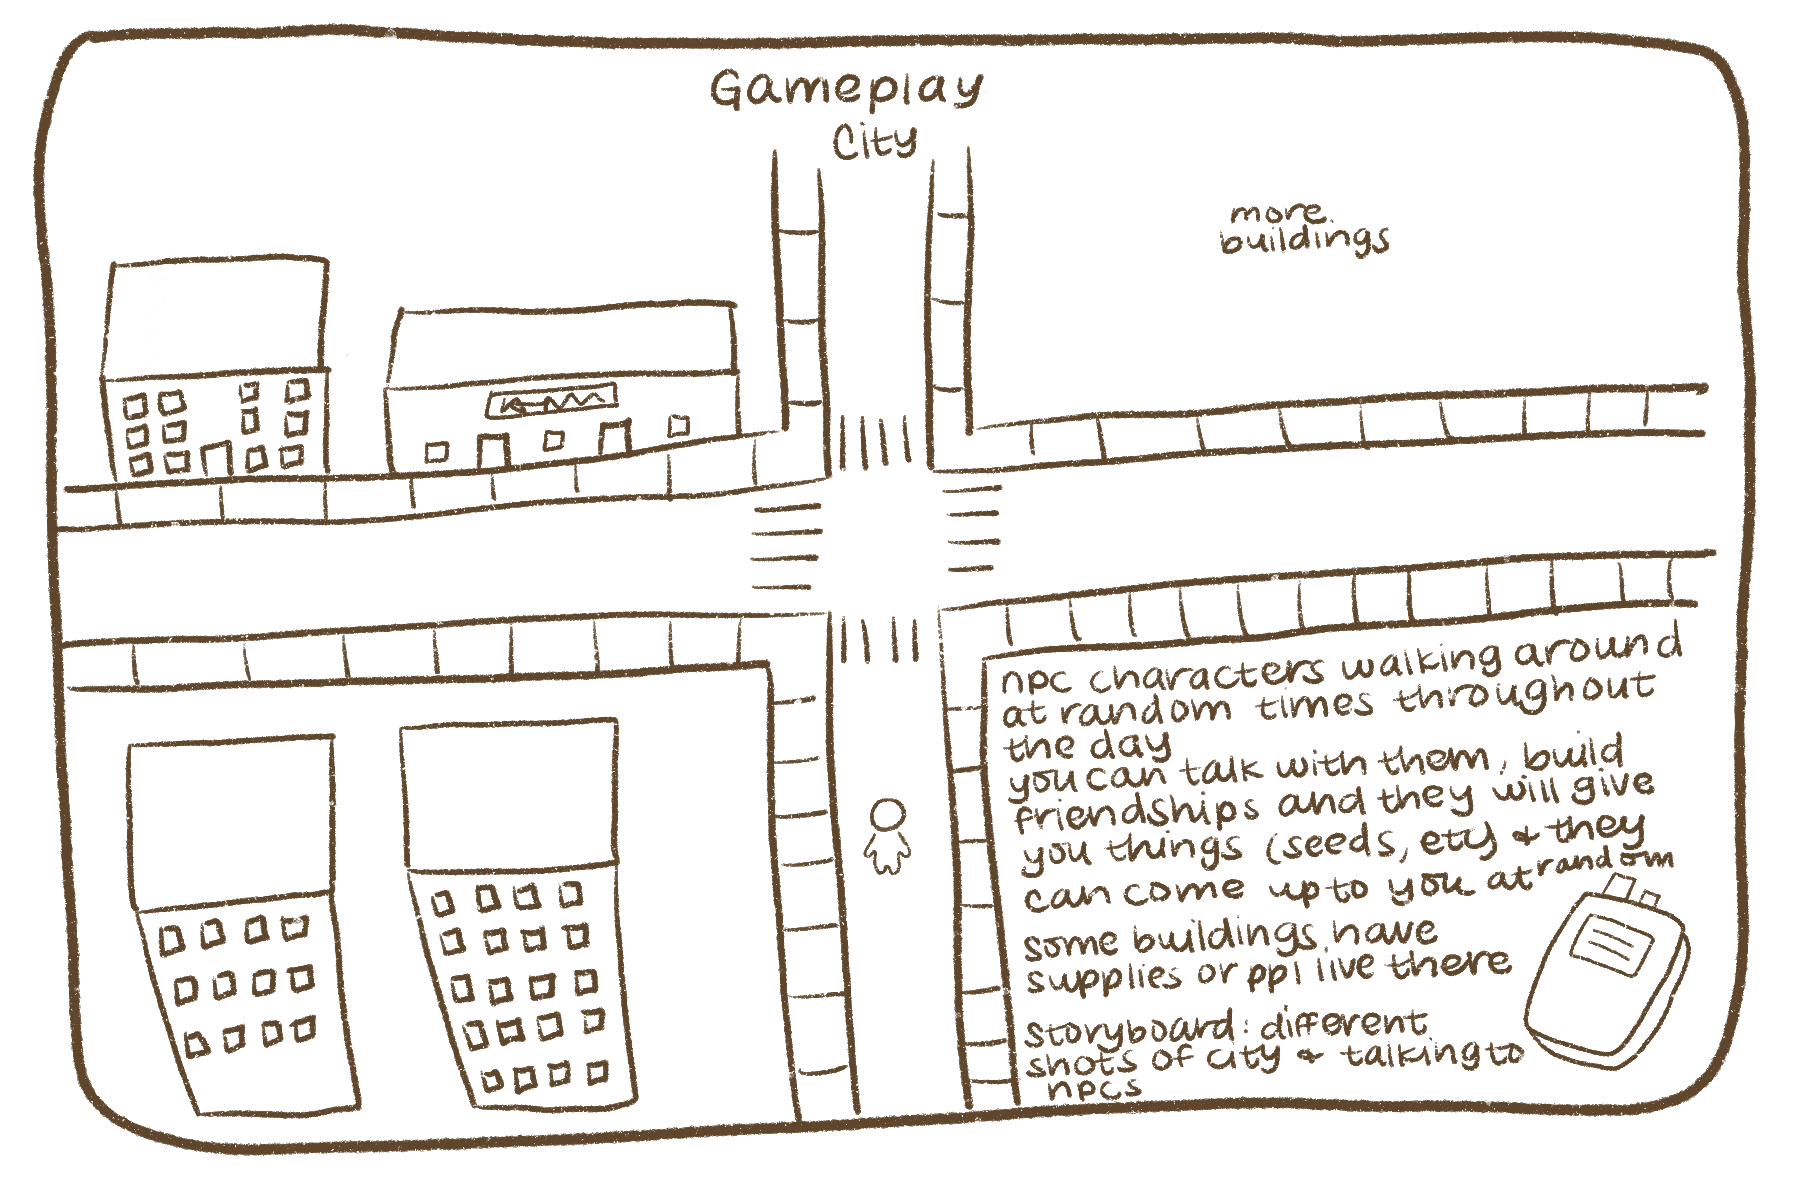 Gameplay
City
more
buildings
npc characters walking around
at random times throughout
the day
you can talk with them, build
friendships and they will give
you things (seeds, etc) & they
can come up to you at random
some buildings have
supplies or ppl live there
storyboard: different
shots of city & talking to
npcs